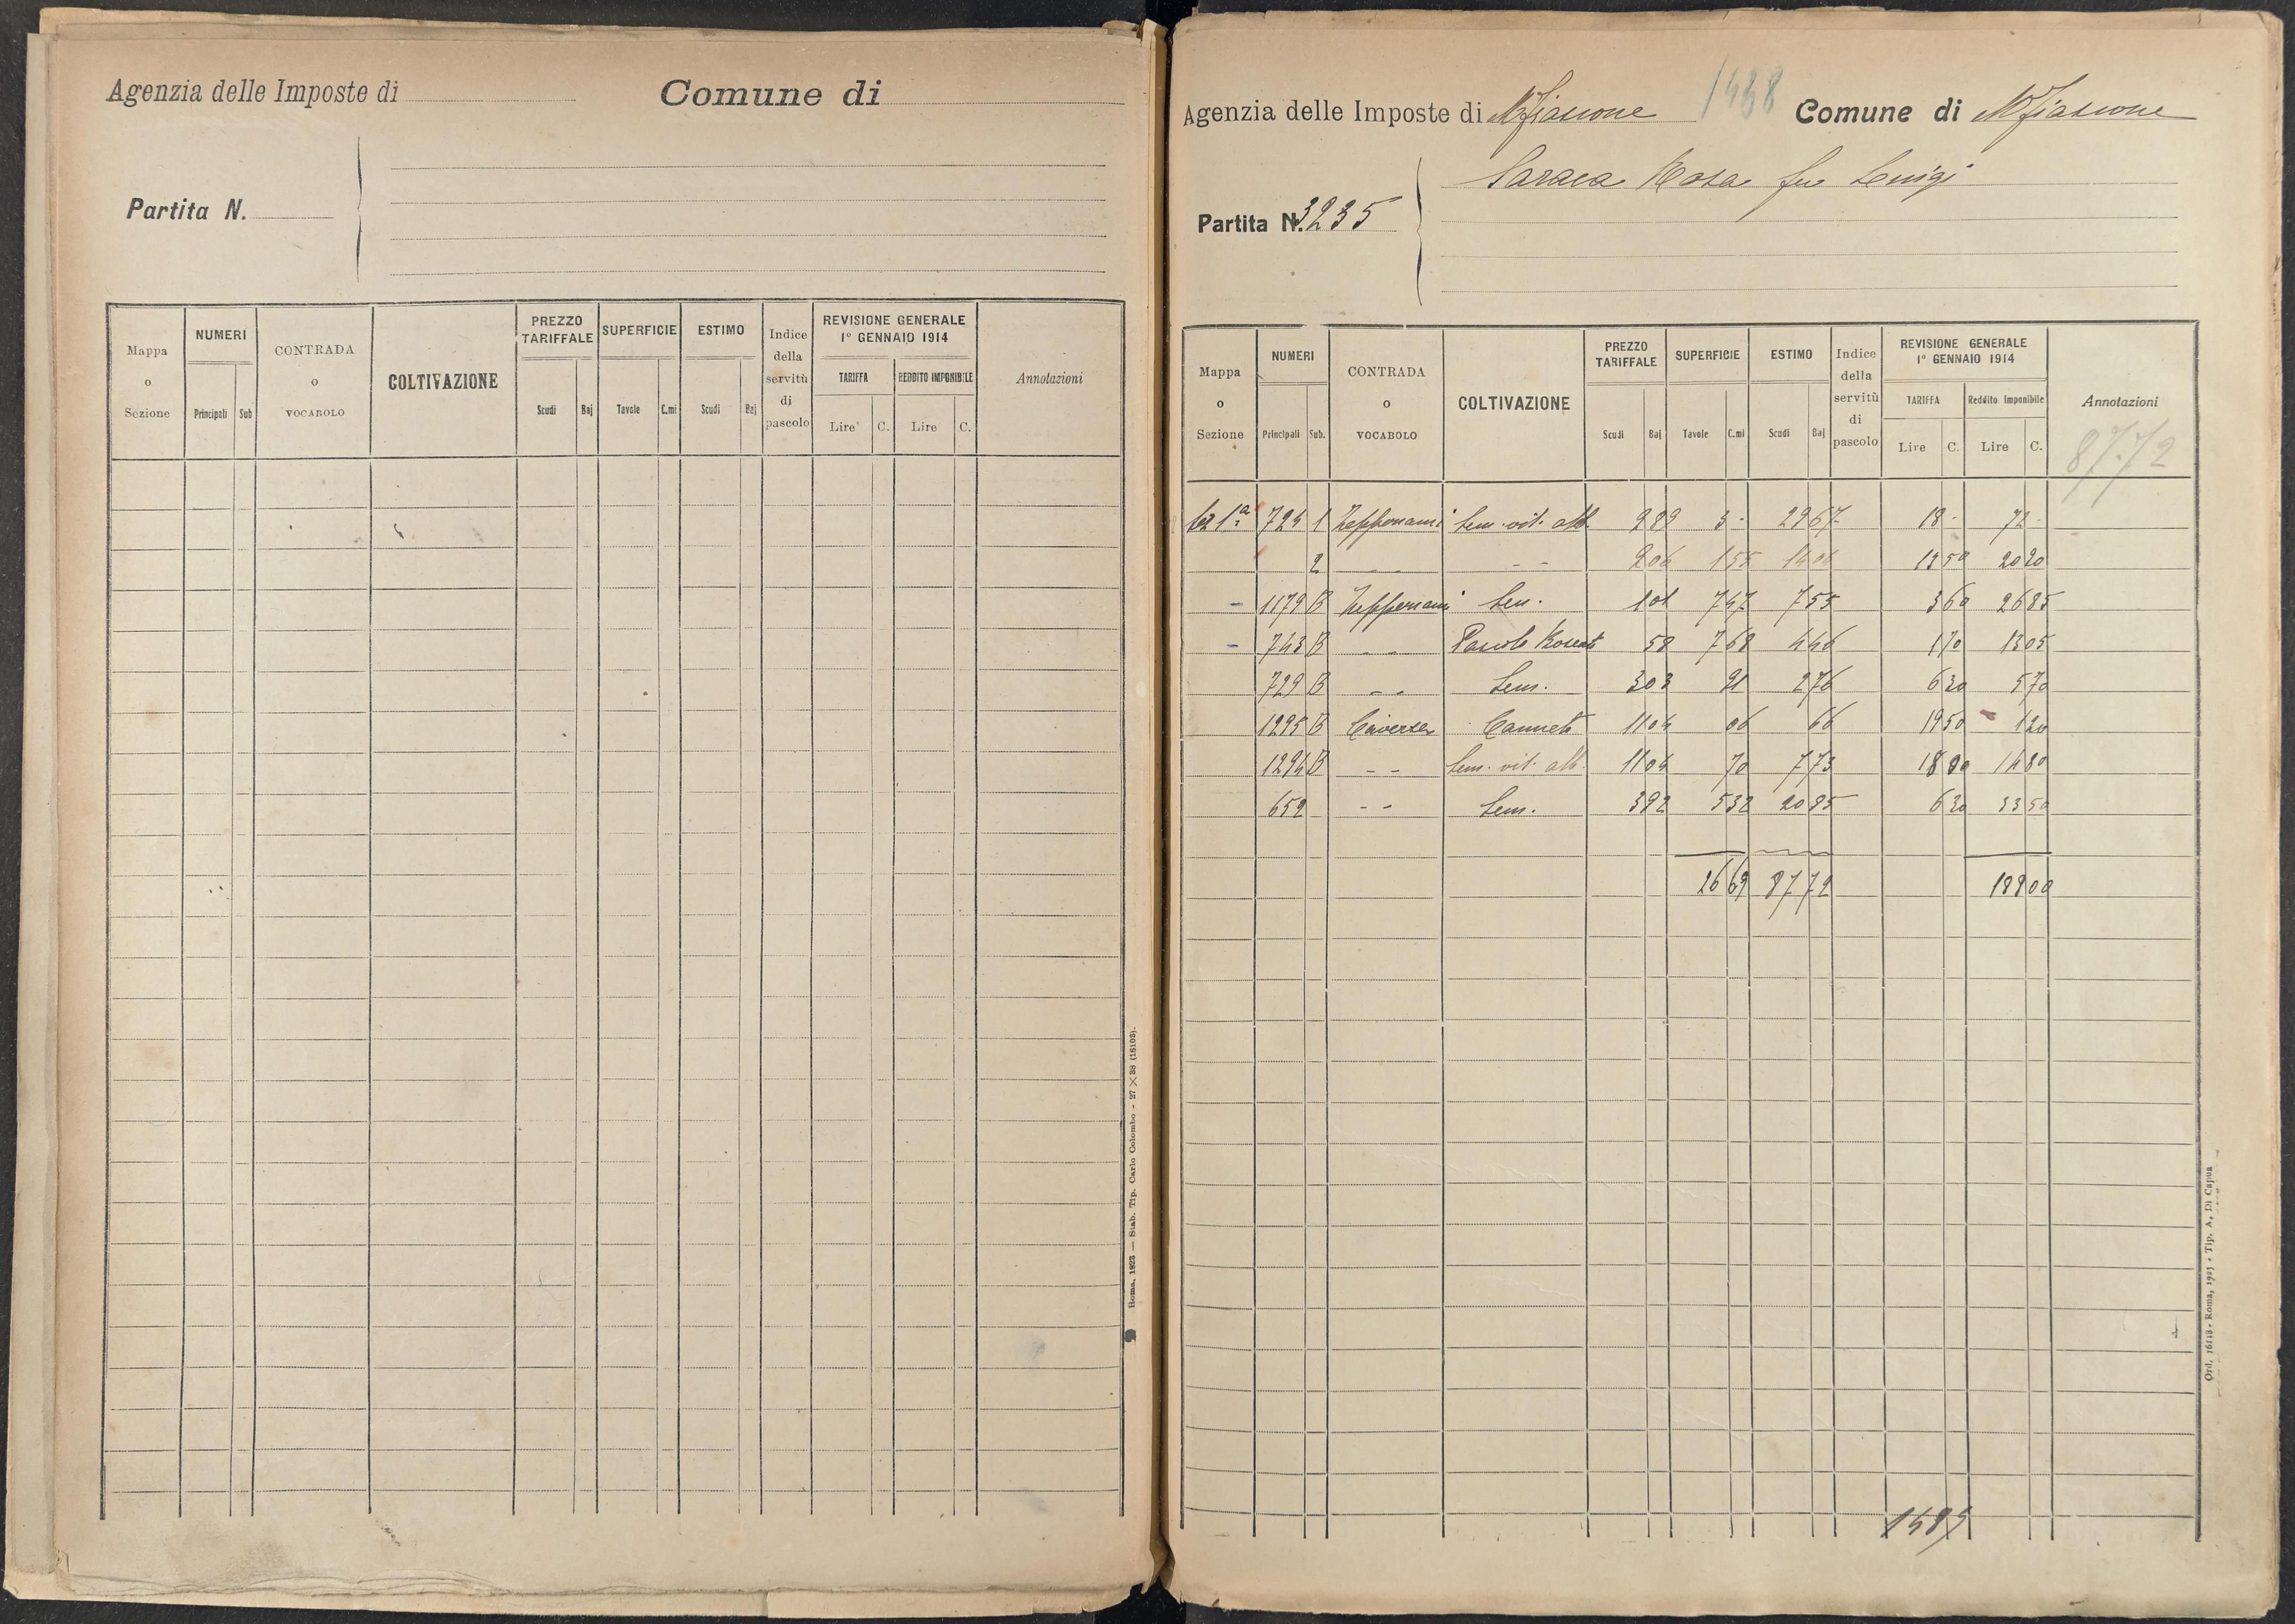 Agenzia delle Imposte di Comune di
Partita N.
Mappa o Sezione NUMERI Principali Sub CONTRADA o VOCABOLO COLTIVAZIONE PREZZO TARIFFALE Scudi Baj SUPERFICIE Tavole C.mi ESTIMO Scudi Baj Indice della servitù di pascolo REVISIONE GENERALE 1° GENNAIO 1914 TARIFFA Lire C. REDDITO IMPONIBILE Lire C. Annotazioni
Roma, 1923 — Stab. Tip. Carlo Colombo - 27 X 38 (16103).
1488
Agenzia delle Imposte di Mfiascone Comune di Mfiascone
Saraca Rosa fu Luigi
Partita N. 3235
Mappa o Sezione NUMERI Principali Sub. CONTRADA o VOCABOLO COLTIVAZIONE PREZZO TARIFFALE Scudi Baj SUPERFICIE Tavole C.mi ESTIMO Scudi Baj Indice della servitù di pascolo REVISIONE GENERALE 1° GENNAIO 1914 TARIFFA Lire C. Reddito Imponibile Lire C. Annotazioni
87.72
Sez 1ª 724 1 Zepponami Sem. vit. alb. 9 89 3 - 29 67 18 - 72 -
2 - - - - 9 06 1 55 14 04 13 50 20 20
- 1179 B Zepponami Sem. 1 01 7 47 7 55 3 60 26 85
- 743 B - - Pascolo Boscato 58 7 68 4 46 1 70 13 05
729 B - - Sem. 3 03 91 2 76 6 30 5 70
1295 B Caverse Canneto 11 04 06 66 19 50 1 20
1294 B - - Sem. vit. alb. 11 04 70 7 73 18 00 14 80
652 - - Sem. 3 92 5 32 20 85 6 30 33 50
26 69 87 72 188 00
1489
Ord. 16118 - Roma, 1923 - Tip. A. Di Capua